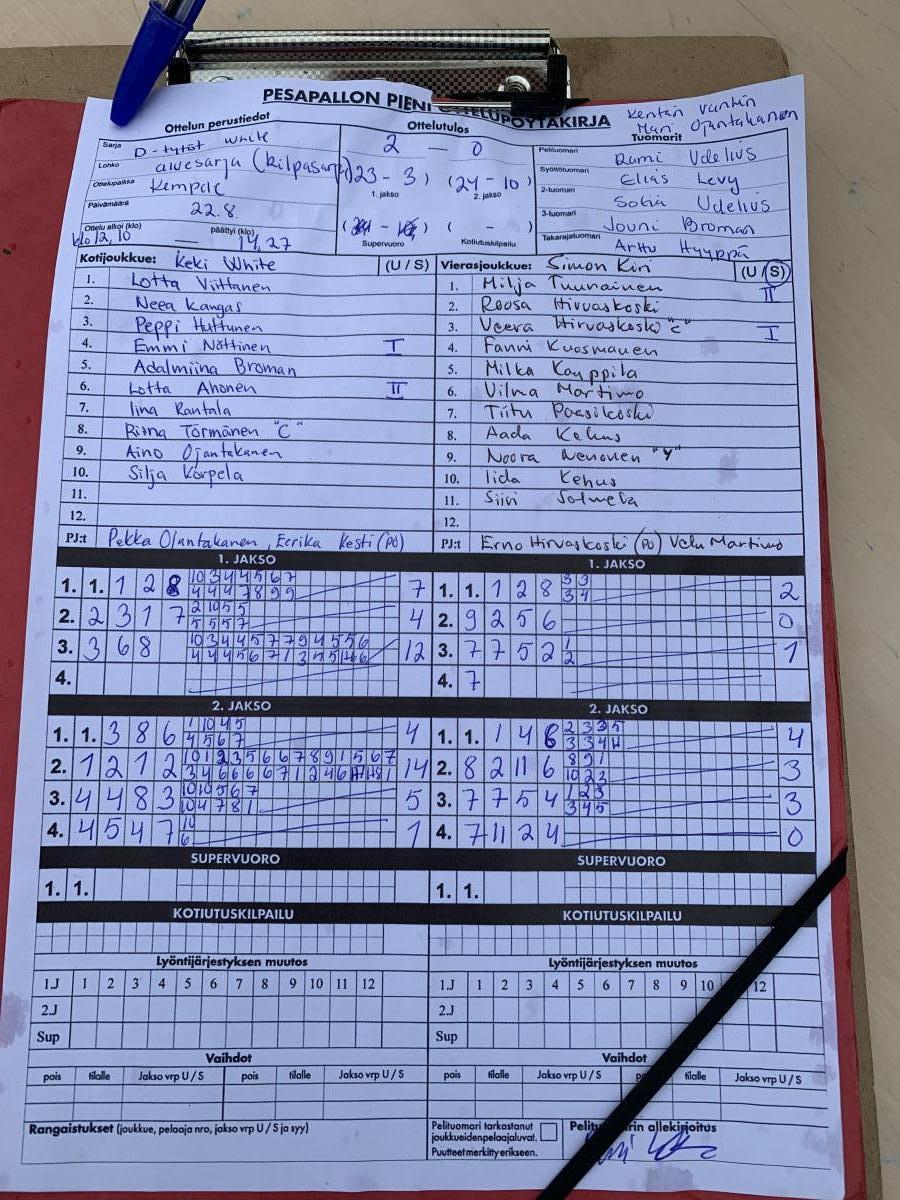 PESÄPALLON PIENI OTTELUPÖYTÄKIRJA
Kentän vuntin
Mari Ojantakanen
Ottelun perustiedot
Sarja D-tytöt white
Lohko alvesarja (kilpasarja)
Ottelupaikka Kempele
Päivämäärä 22.8.
Ottelu alkoi (klo) klo 12,10 — päättyi (klo) 14,27
Ottelutulos
2 — 0
(23 - 3) (24 - 10)
1. jakso 2. jakso
( - ) ( - )
Supervuoro Kotiutuskilpailu
Tuomarit
Pelituomari Rami Udelius
Syöttötuomari Elias Levy
2-tuomari Sofia Udelius
3-tuomari Jouni Broman
Takarajatuomari Arttu Hyyppä
Kotijoukkue: Keki White (U / S)
1. Lotta Viittanen
2. Neea Kangas
3. Peppi Huttunen
4. Emmi Nättinen I
5. Adalmiina Broman
6. Lotta Ahonen II
7. Iina Rantala
8. Ritna Törmänen "C"
9. Aino Ojantakanen
10. Silja Korpela
11.
12.
PJ:t Pekka Ojantakanen, Eerika Kesti (PO)
Vierasjoukkue: Simon Kiri (U / S)
1. Milja Tuunainen II
2. Roosa Hirvaskoski
3. Veera Hirvaskoski "C" I
4. Fanni Kuosmanen
5. Milka Kauppila
6. Vilma Martimo
7. Tiitu Paasikoski
8. Aada Kehus
9. Noora Nenonen "Y"
10. Iida Kehus
11. Siiri
12.
PJ:t Erno Hirvaskoski (PO) Velu Martimo
1. JAKSO
1. 1. 1 2 8 10 3 4 4 5 6 7 7
4 4 4 7 8 9 9
2. 2 3 1 7 2 10 5 5 4
5 5 5 7
3. 3 6 8 10 3 4 4 5 7 7 9 4 5 5 6 12
4 4 4 5 6 7 1 3 5 5
4.
1. JAKSO
1. 1. 1 2 8 3 3 2
3 4
2. 9 2 5 6 0
3. 7 7 5 2 1 1
2
4. 7
2. JAKSO
1. 1. 3 8 6 1 10 4 5 4
4 5 6 7
2. 1 2 1 2 10 1 2 3 5 6 6 7 8 9 1 5 6 7 14
3 4 6 6 6 6 7 1 2 4 6
3. 4 4 8 3 10 10 5 6 7 5
10 4 7 8 1
4. 4 5 4 7 10 1
6
2. JAKSO
1. 1. 1 4 6 2 3 3 5 4
3 3 4 11
2. 8 2 11 6 8 9 1 3
10 2 3
3. 7 7 5 4 1 2 3 3
3 4 5
4. 7 11 2 4 0
SUPERVUORO
1. 1.
SUPERVUORO
1. 1.
KOTIUTUSKILPAILU
KOTIUTUSKILPAILU
Lyöntijärjestyksen muutos
1.J 1 2 3 4 5 6 7 8 9 10 11 12
2.J
Sup
Lyöntijärjestyksen muutos
1.J 1 2 3 4 5 6 7 8 9 10 12
2.J
Sup
Vaihdot
pois tilalle Jakso vrp U / S pois tilalle Jakso vrp U / S
Vaihdot
pois tilalle Jakso vrp U / S tilalle Jakso vrp U / S
Rangaistukset (joukkue, pelaaja nro, jakso vrp U / S ja syy)
Pelituomari tarkastanut
joukkueidenpelaajaluvat.
Puutteet merkitty erikseen.
Pelituomarin allekirjoitus